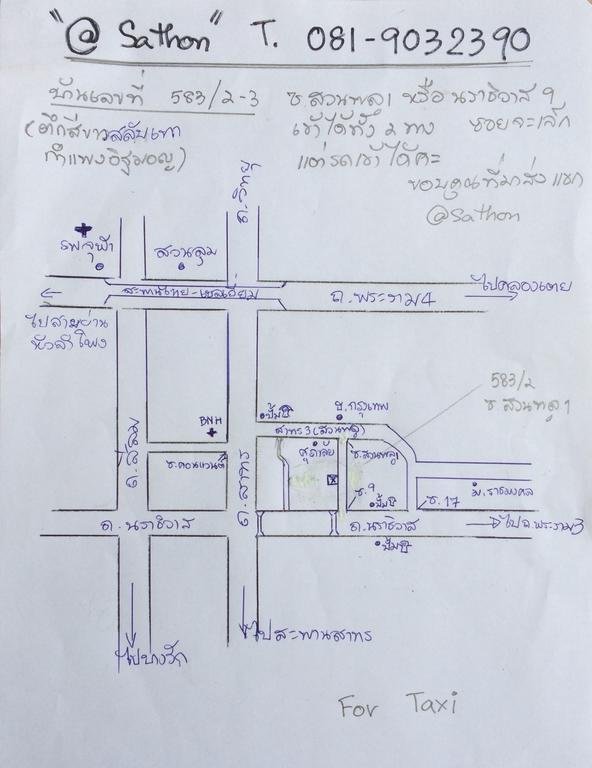 "@ Sathon" T. 081-9032390
บ้านเลขที่ 583/2-3
(ตึกสีขาวสลับเทา
กำแพงอิฐมอญ)
ซ.สวนพลู 1 หรือ นราธิวาส 9
เข้าได้ทั้ง 2 ทาง ซอยจะเล็ก
แต่รถเข้าได้ค่ะ
ขอบคุณที่มาส่งแขก
@Sathon
ถ.วิทยุ
รพ.จุฬา
สวนลุม
สะพานไทย-เบลเยี่ยม
ถ.พระราม 4
ไปคลองเตย
ไปสามย่าน
หัวลำโพง
583/2
ซ.สวนพลู 1
ถ.สีลม
BNH
ซ.คอนแวนต์
ถ.สาทร
ปั๊ม
ธ.กรุงเทพ
สาทร 3 (สวนพลู)
ซ.สวนพลู 1
ซ.9
ปั๊ม
ซ.17
ถ.นราธิวาส
ถ.นราธิวาส
ไปถ.พระราม 3
ปั๊ม
ไปบางรัก
ไปสะพานสาทร
For Taxi